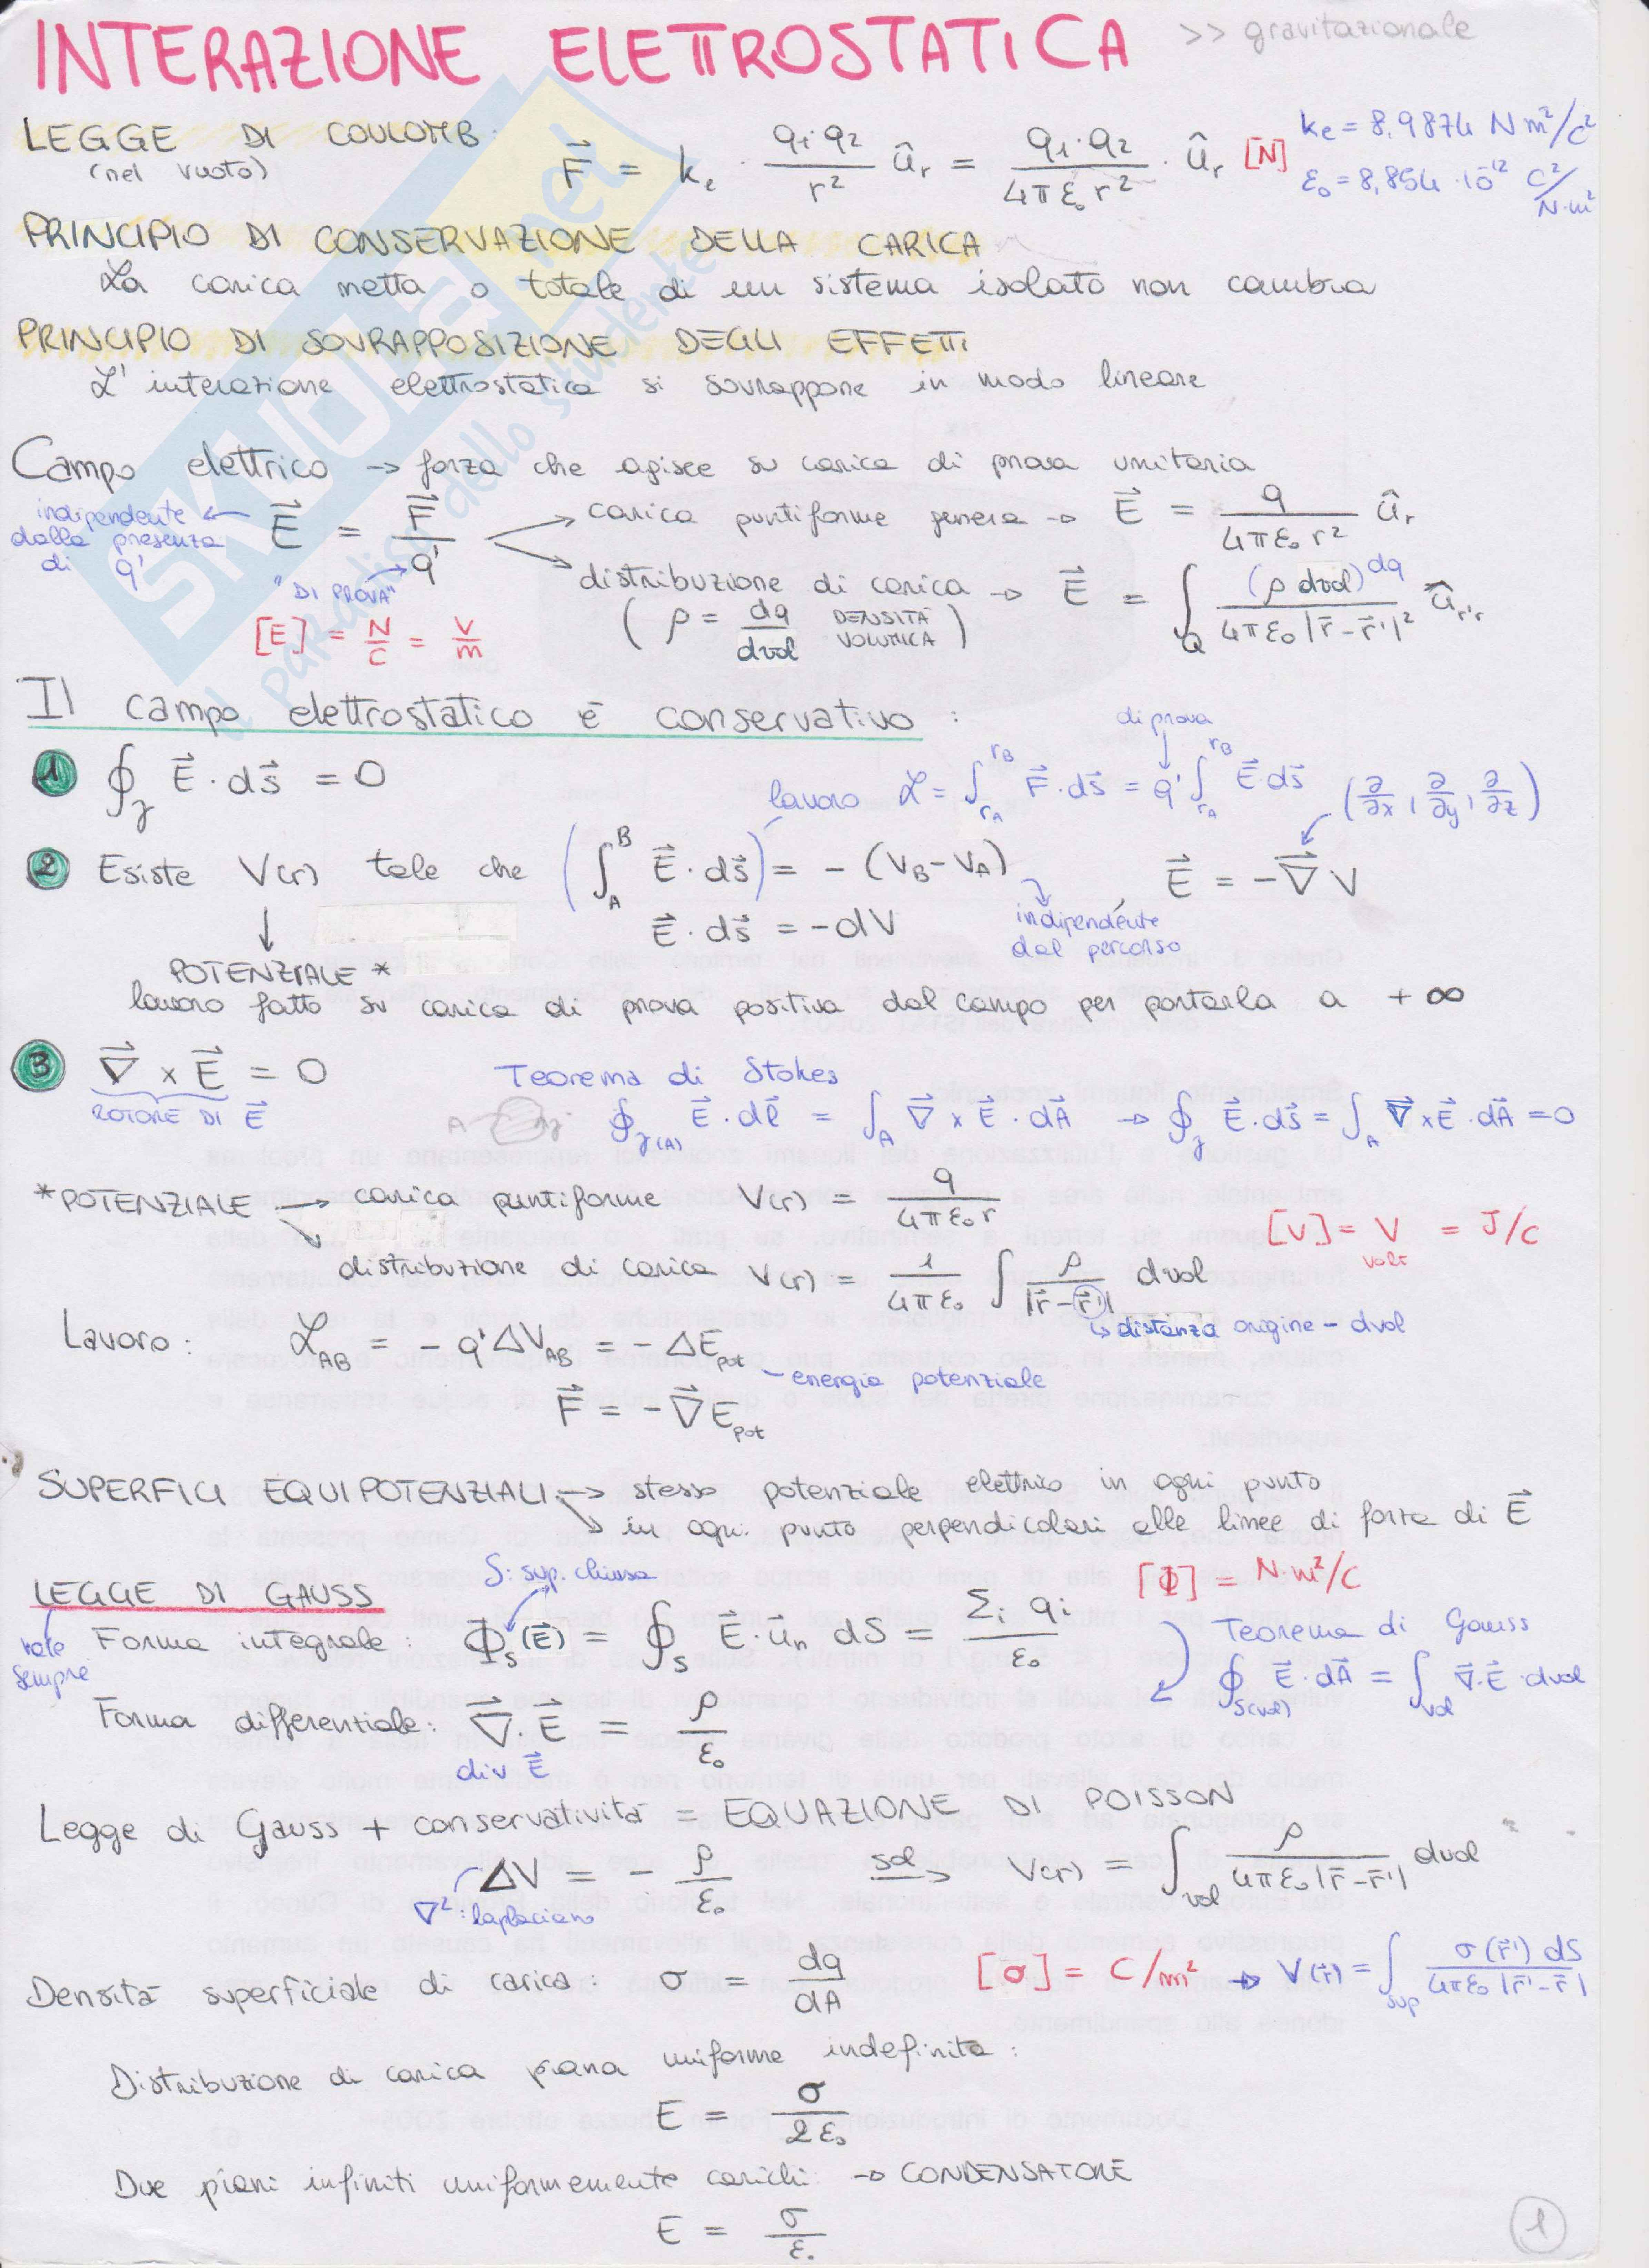 INTERAZIONE ELETTROSTATICA >> gravitazionale
LEGGE DI COULOMB:
(nel vuoto)
F⃗ = kₑ · q₁·q₂/r² ûᵣ = q₁·q₂/4πε₀r² · ûᵣ [N]
kₑ = 8,9874 N m²/C²
ε₀ = 8,854 · 10⁻¹² C²/N·m²
PRINCIPIO DI CONSERVAZIONE DELLA CARICA
La carica netta o totale di un sistema isolato non cambia
PRINCIPIO DI SOVRAPPOSIZIONE DEGLI EFFETTI
L'interazione elettrostatica si sovrappone in modo lineare
Campo elettrico → forza che agisce su carica di prova unitaria
indipendente dalla presenza di q' ← E⃗ = F⃗/q'
"DI PROVA"
carica puntiforme genera → E⃗ = q/4πε₀r² ûᵣ
distribuzione di carica → E⃗ = ∫_Q (ρ dvol)^dq/4πε₀|r⃗-r⃗'|² û_r'r
(ρ = dq/dvol DENSITÀ VOLUMICA)
[E] = N/C = V/m
Il campo elettrostatico è conservativo:
1 ∮_γ E⃗·ds⃗ = 0
di prova
lavoro ℒ = ∫_rA^rB F⃗·ds⃗ = q' ∫_rA^rB E⃗ ds⃗ (∂/∂x, ∂/∂y, ∂/∂z)
2 Esiste V(r) tale che (∫_A^B E⃗·ds⃗) = -(V_B-V_A), E⃗ = -∇⃗V
E⃗·ds⃗ = -dV
indipendente dal percorso
POTENZIALE *
lavoro fatto su carica di prova positiva dal campo per portarla a +∞
3 ∇⃗ x E⃗ = 0
ROTORE DI E⃗
Teorema di Stokes
A γ ∮_γ(A) E⃗·dℓ⃗ = ∫_A ∇⃗ x E⃗·dA⃗ → ∮_γ E⃗·ds⃗ = ∫_A ∇⃗xE⃗·dA⃗ = 0
*POTENZIALE → carica puntiforme V(r) = q/4πε₀r
[V] = V = J/C
volt
distribuzione di carica V(r) = 1/4πε₀ ∫ ρ/|r⃗-r⃗'| dvol
↳ distanza origine - dvol
Lavoro: ℒ_AB = -q'ΔV_AB = -ΔE_pot
energia potenziale
F⃗ = -∇⃗E_pot
SUPERFICI EQUIPOTENZIALI → stesso potenziale elettrico in ogni punto
in ogni punto perpendicolari alle linee di forza di E⃗
LEGGE DI GAUSS
S: sup. chiusa
[Φ] = N·m²/C
vale sempre
Forma integrale: Φ_S(E⃗) = ∮_S E⃗·u⃗ₙ dS = Σᵢ qᵢ/ε₀
Teorema di Gauss
∮_S(vol) E⃗·dA⃗ = ∫_vol ∇⃗·E⃗·dvol
Forma differenziale: ∇⃗·E⃗ = ρ/ε₀
div E⃗
Legge di Gauss + conservatività = EQUAZIONE DI POISSON
ΔV = - ρ/ε₀ sol→ V(r) = ∫_vol ρ/4πε₀|r⃗-r⃗'| dvol
∇²: laplaciano
Densità superficiale di carica: σ = dq/dA [σ] = C/m² → V(r⃗) = ∫_sup σ(r⃗') dS/4πε₀|r⃗'-r⃗|
Distribuzione di carica piana uniforme indefinita:
E = σ/2ε₀
Due piani infiniti uniformemente carichi: → CONDENSATORE
E = σ/ε₀
1
SKUOLA.net
il paradiso dello studente